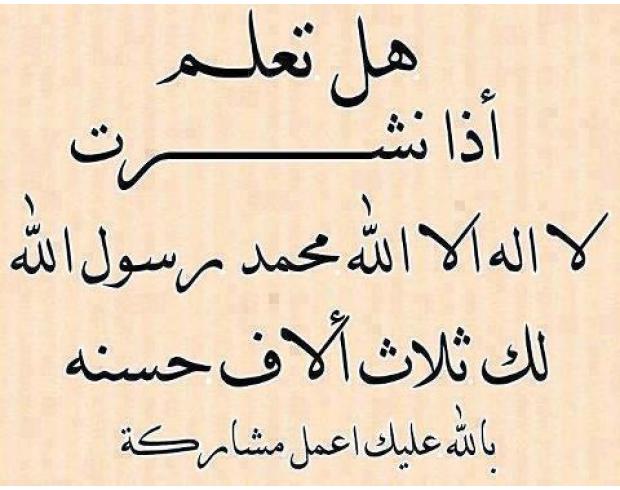 هل تعلم
أذا نشرت
لا اله الا الله محمد رسول الله
لك ثلاث ألاف حسنه
بالله عليك اعمل مشاركة